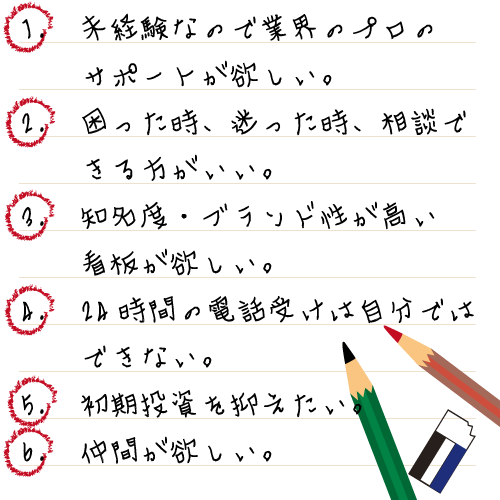 1. 未経験なので業界のプロの
サポートが欲しい。
2. 困った時、迷った時、相談で
きる方がいい。
3. 知名度・ブランド性が高い
看板が欲しい。
4. 24時間の電話受けは自分では
できない。
5. 初期投資を抑えたい。
6. 仲間が欲しい。